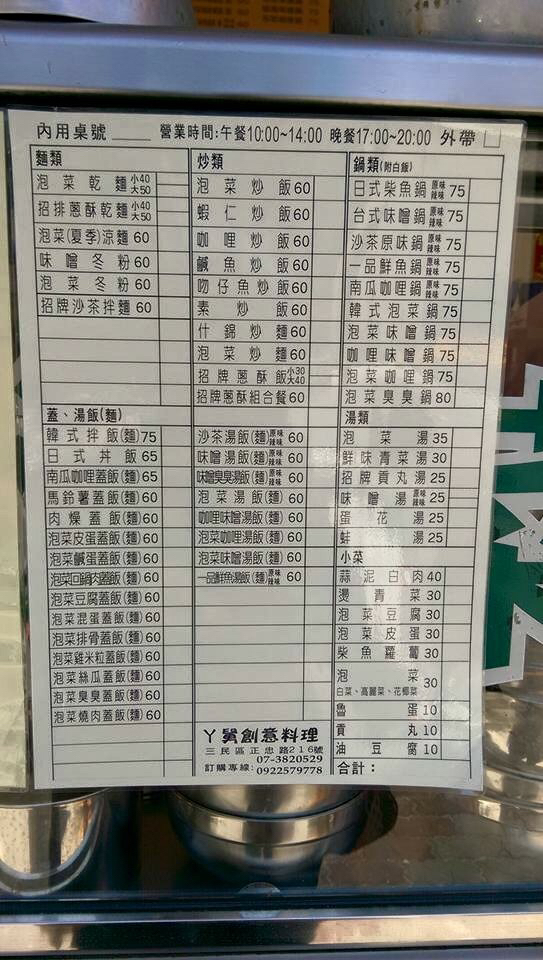 內用桌號 營業時間:午餐10:00~14:00 晚餐17:00~20:00 外帶
麵類
泡菜乾麵 小40 大50
招排蔥酥乾麵 小40 大50
泡菜(夏季)涼麵 60
味噌冬粉 60
泡菜冬粉 60
招牌沙茶拌麵 60
炒類
泡菜炒飯 60
蝦仁炒飯 60
咖哩炒飯 60
鹹魚炒飯 60
吻仔魚炒飯 60
素炒飯 60
什錦炒麵 60
泡菜炒麵 60
招牌蔥酥飯 小30 大40
招牌蔥酥組合餐 60
鍋類(附白飯)
日式柴魚鍋 原味 辣味 75
台式味噌鍋 原味 辣味 75
沙茶原味鍋 原味 辣味 75
一品鮮魚鍋 原味 辣味 75
南瓜咖哩鍋 原味 辣味 75
韓式泡菜鍋 75
泡菜味噌鍋 75
咖哩味噌鍋 75
泡菜咖哩鍋 75
泡菜臭臭鍋 80
蓋、湯飯(麵)
韓式拌飯(麵) 75
日式丼飯 65
南瓜咖哩蓋飯(麵) 65
馬鈴薯蓋飯(麵) 60
肉燥蓋飯(麵) 60
泡菜皮蛋蓋飯(麵) 60
泡菜鹹蛋蓋飯(麵) 60
泡菜回鍋肉蓋飯(麵) 60
泡菜豆腐蓋飯(麵) 60
泡菜混蛋蓋飯(麵) 60
泡菜排骨蓋飯(麵) 60
泡菜雞米粒蓋飯(麵) 60
泡菜絲瓜蓋飯(麵) 60
泡菜臭臭蓋飯(麵) 60
泡菜燒肉蓋飯(麵) 60
沙茶湯飯(麵) 原味 辣味 60
味噌湯飯(麵) 原味 辣味 60
味噌臭臭湯飯(麵) 原味 辣味 60
泡菜湯飯(麵) 60
咖哩味噌湯飯(麵) 60
泡菜咖哩湯飯(麵) 60
泡菜味噌湯飯(麵) 60
一品鮮魚湯飯(麵) 原味 辣味 60
湯類
泡菜湯 35
鮮味青菜湯 30
招牌貢丸湯 25
味噌湯 原味 辣味 25
蛋花湯 25
蚌湯 25
小菜
蒜泥白肉 40
燙青菜 30
泡菜豆腐 30
泡菜皮蛋 30
柴魚蘿蔔 30
泡菜 30
白菜、高麗菜、花椰菜
魯蛋 10
貢丸 10
油豆腐 10
合計：
丫舅創意料理
三民區正忠路216號
07-3820529
訂購專線: 0922579778